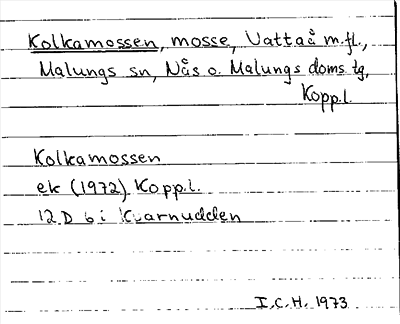 Kolkamossen, mosse, Vattaå m.fl.,
Malungs sn, Nås o. Malungs doms.tg,
Kopp.l.
Kolkamossen
ek (1972) Kopp.l.
12 D 6 i Kvarnudden
I.C.H. 1973